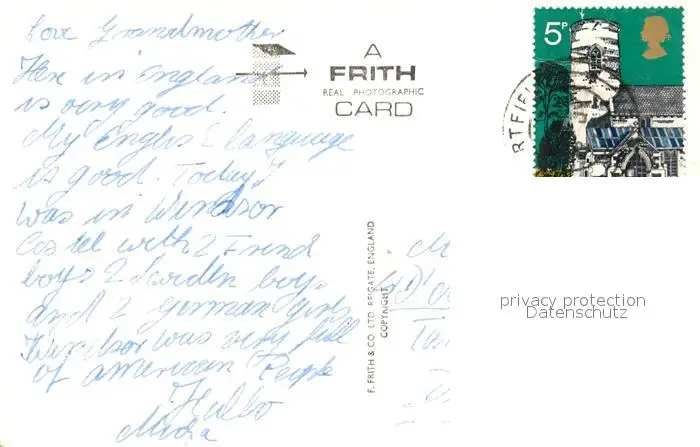 Love Grandmother
Her in England
is very good.
My Englis language
is good. Today I
was in Windsor
Castel with 2 Friend
boys 2 Sweden boys
and 2 german girls
Windsor was very full
of american People
Hullo
A
FRITH
REAL PHOTOGRAPHIC
CARD
5P
RTFIEL
F. FRITH & CO. LTD. REIGATE, ENGLAND
COPYRIGHT
privacy protection
Datenschutz